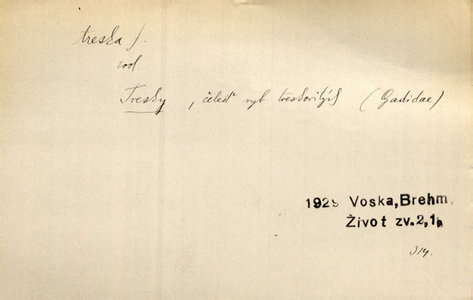 treska f.
zool.
Tresky, čeleď ryb treskovitých (Gadidae).
1929 Voska, Brehm,
Život zv.2,1,
314.